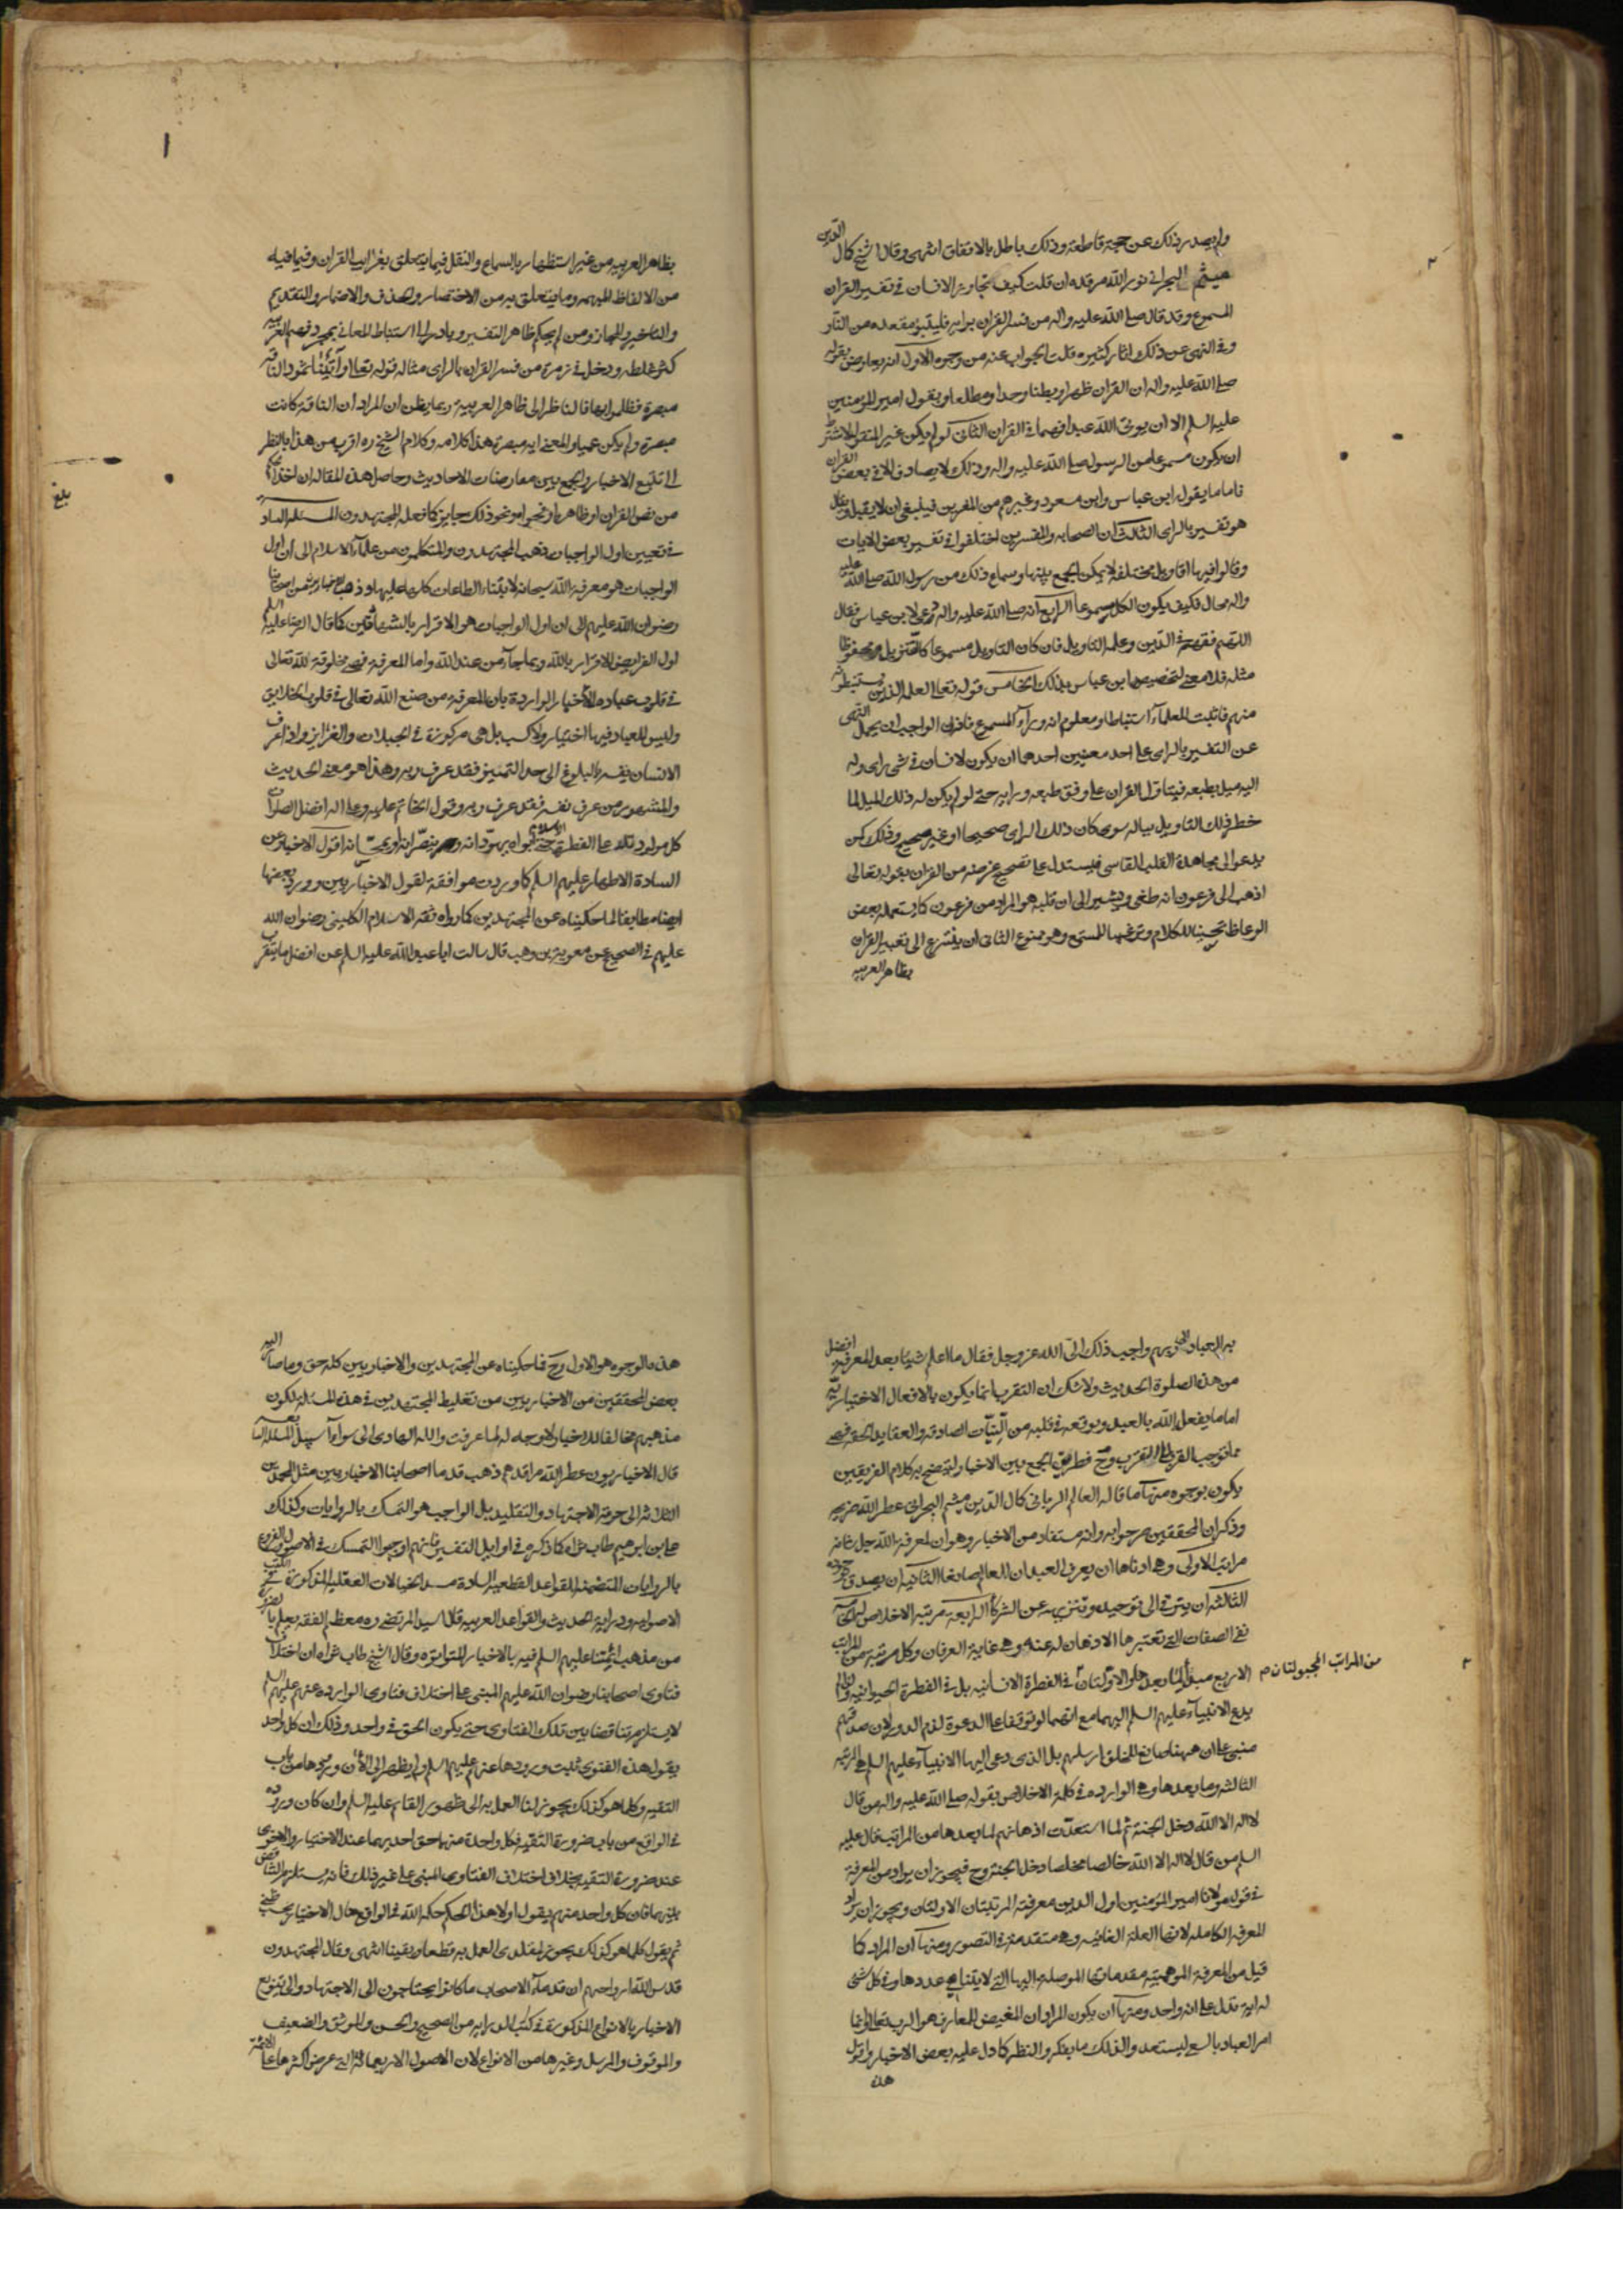 ولم يصدر ذلك عن حجة قاطعة وذلك باطل بالاتفاق انتهى وقال الشيخ كمال الدين
ميثم البحراني نور الله مرقده ان قلت كيف تجاوز الانسان في تفسير القران
المسموع وقد قال صلى الله عليه واله من فسر القران برايه فليتبؤ مقعده من النار
وفي النهي عن ذلك اثار كثيره قلت الجواب عنه من وجوه الاول انه يعارض بقوله
صلى الله عليه واله ان القران ظهرا وبطنا وحدا ومطلعا وبقول امير المؤمنين
عليه السلم الا ان يوتى الله عبدا فهما في القران الثاني لو لم يكن غير المنقول لاشترط
ان يكون مسموعا من الرسول صلى الله عليه واله وذلك لا يصادف الا في بعض القران
فاما ما يقوله ابن عباس وابن مسعود وغيرهم من المفسرين فينبغي ان لا يقبل ويقال
هو تفسير بالراى الثالث ان الصحابه والمفسرين اختلفوا في تفسير بعض الايات
وقالوا فيها اقاويل مختلفة لا يمكن الجمع بينها وسماع ذلك من رسول الله صلى الله عليه
واله محال فكيف يكون الكل مسموعا الرابع انه صلى الله عليه واله دعى لابن عباس فقال
اللهم فقهه في الدين وعلمه التاويل فان كان التاويل مسموعا كالتنزيل ومحفوظا
مثله فلا معنى لتخصيص ابن عباس بذلك الخامس قوله تعالى لعلمه الذين يستنبطونه
منهم فاثبت للعلماء استنباطا ومعلوم انه وراء المسموع فاذن الواجب ان يحمل النهى
عن التفسير بالراى على احد معنيين احدهما ان يكون للانسان في شئ راى وله
اليه ميل بطبعه فيتاول القران على وفق طبعه ورايه حتى لو لم يكن له ذلك الميل لما
خطر ذلك التاويل بباله سواء كان ذلك الراى صحيحا او غير صحيح وذلك كمن
يدعوا الى مجاهدة القلب القاسى فيستدل على تصحيح غرضه من القران بقوله تعالى
اذهب الى فرعون انه طغى ويشير الى ان قلبه هو المراد من فرعون كما يستعمله بعض
الوعاظ تحسينا للكلام وترغيبا للمستمع وهو ممنوع الثاني ان يتسرع الى تفسير القران
بظاهر العربيه
بظاهر العربيه من غير استظهار بالسماع والنقل فيما يتعلق بغرايب القران وفيما فيه
من الالفاظ المبهمه وما يتعلق به من الاختصار والحذف والاضمار والتقديم
والتاخير والمجاز ومن لم يحكم ظاهر التفسير وبادر الى استنباط المعاني بمجرد فهم العربيه
كثر غلطه ودخل في زمرة من فسر القران بالراى مثاله قوله تعالى وآتينا ثمود الناقة
مبصرة فظلموا بها فالناظر الى ظاهر العربية ربما يظن ان المراد ان الناقة كانت
مبصرة ولم يكن عمياء والمعنى اية مبصرة هذا كلامه وكلام الشيخ ره اقرب من هذا بالنظر
الى تتبع الاخبار والجمع بين معارضات الاحاديث وحاصل هذه المقالة ان اخذ
من نص القران او ظاهره او فحواه ونحو ذلك جايز كما فعله المجتهدون المسئلة
في تعيين اول الواجبات ذهب المجتهدون والمتكلمون من علماء الاسلام الى ان اول
الواجبات هو معرفة الله سبحانه لابتناء الطاعات كلها عليها وذهب الاخباريون من اصحابنا
رضوان الله عليهم الى ان اول الواجبات هو الاقرار بالشهادتين كما قال الرضا عليه السلم
اول الفرايض الاقرار بالله وبما جاء من عند الله واما المعرفة فهي مخلوقة لله تعالى
في قلوب عباده للاخبار الواردة بان المعرفة من صنع الله تعالى في قلوب الخلايق
وليس للعباد فيها اختيار ولا كسب بل هى مركوزة في الجبلات والغرايز واذا عرف
الانسان نفسه بالبلوغ الى حد التمييز فقد عرف ربه وهذا هو معنى الحديث
والمشهور من عرف نفسه فقد عرف ربه وقول الخاتم عليه وعلى اله افضل الصلوات
كل مولود يولد على الفطرة الاسلام حتى ابواه يهودانه وينصرانه ويمجسانه اقول الاخبار عن
السادة الاطهار عليهم السلم كما وردت موافقة لقول الاخباريين وورد بعضها
ايضا مطابقا لما حكيناه عن المجتهدين كما رواه ثقة الاسلام الكليني رضوان الله
عليهم في الصحيح عن معوية بن وهب قال سالت ابا عبد الله عليه السلم عن افضل ما يتقرب
بلغ
به العباد الى ربهم واحب ذلك الى الله عز وجل فقال ما اعلم شيئا بعد المعرفة افضل
من هذه الصلوة الحديث ولا شك ان التقرب انما يكون بالافعال الاختيارية
اما ما يفعل الله بالعبد ويوقعه في قلبه من النيات الصادقه والعقايد الحقه فهي
مما توجب القرب لا التقرب وح فطريق الجمع بين الاخبار وليتضح به كلام الفريقين
يكون بوجوه منها ما قاله العالم الرباني كمال الدين ميثم البحراني عطر الله ضريحه
وذكر ان المحققين صرحوا به وانه مستفاد من الاخبار وهو ان لمعرفة الله جل شانه
مراتب الاولى وهي ادناها ان يعرف العبد ان للعالم صانعا الثانيه ان يصدق بوجوده
الثالثه ان يترقى الى توحيده وتنزيهه عن الشركاء الرابعة مرتبة الاخلاص له
نفى الصفات التي تعتبرها الاذهان له عنه وهي غاية العرفان وكل مرتبة من المراتب
الاربع والاوليان في الفطرة الانسانيه بل في الفطرة الحيوانيه ولذلك لم
من المراتب المجبولتان م
يدع الانبياء عليهم السلم اليهما مع انهما لو توقفا على الدعوة لزم الدور لان صدقهم
مبنى على ان ههنا صانع للخلق ارسلهم بل الذى دعى اليها الانبياء عليهم السلم هي المرتبه
الثالثه وما بعدها وهي الوارده في كلمة الاخلاص بقوله صلى الله عليه واله من قال
لا اله الا الله دخل الجنة ثم لما استعدت اذهانهم لما بعدها من المراتب قال عليه
السلم من قال لا اله الا الله خالصا مخلصا دخل الجنة وح فيجوز ان يراد من المعرفة
في قول مولانا امير المؤمنين اول الدين معرفته المرتبتان الاوليان ويجوز ان يراد
المعرفه الكامله لانها العلة الغائيه وهي متقدمة في التصور ومنها ان المراد كما
قيل من المعرفة الموهبية مقدماتها الموصلة اليها التي لا يتناهى عددها وفي كل شئ
له اية تدل على انه واحد ومنها ان يكون المراد ان المفيض للمعارف هو الرب تعالى وانما
امر العباد بالسعى ليستعدوا لذلك بالفكر والنظر كما دل عليه بعض الاخبار واقول
هذه
هذه الوجوه هو الاول وح فما حكيناه عن المجتهدين والاخباريين كله حق وما صار اليه
بعض المحققين من الاخباريين من تغليط المجتهدين في هذه المسئلة لكون
مذهبهم مخالفا للاخبار لا وجه له لما عرفت والله الهادى الى سواء السبيل المسئلة
قال الاخباريون عطر الله مراقدهم ذهب قدماء اصحابنا الاخباريين مثل المحمدين
الثلاثه الى حرمة الاجتهاد والتقليد بل الواجب هو التمسك بالروايات وكذلك
علي بن ابرهيم طاب ثراه كما ذكره في اوايل التفسير فانهم اوجبوا التمسك في الاصول والفروع
بالروايات المتضمنه للقواعد القطعية السادة مسد الخيالات العقليه المذكورة في الكتب
الاصوليه ودراية الحديث والقواعد العربيه قال السيد المرتضى ره معظم الفقه يعلم بالضرورة
من مذهب ائمتنا عليهم السلم فيه بالاخبار المتواترة وقال الشيخ طاب ثراه ان اختلاف
فتاوى اصحابنا رضوان الله عليهم المبنى على اختلاف فتاوى الوارده عنهم عليهم السلم
لا يستلزم تناقضا بين تلك الفتاوى حتى يكون الحق في واحد وذلك ان كل واحد
يقول هذه الفتوى ثبت ورودها عنهم عليهم السلم ولم يظهر الى الان ورودها من باب
التقيه وكلما هو كذلك يجوز لنا العمل به الى ظهور القائم عليه السلم وان كان وروده
في الواقع من باب ضرورة التقيه فكل واحدة منهما حق احديهما عند الاختيار والاخرى
عند ضرورة التقيه بخلاف اختلاف الفتاوى المبنى على غير ذلك فانه يستلزم التناقض
بينهما فان كل واحد منهم يقول اولا هذا الحكم حكم الله في الواقع حال الاختيار بحسب ظني
ثم يقول كلما هو كذلك يجوز لمقلدى العمل به قطعا ويقينا انتهى وقال المجتهدون
قدس الله ارواحهم ان قدماء الاصحاب ما كانوا يحتاجون الى الاجتهاد والى تنويع
الاخبار بالانواع المذكورة في كتب الدرايه من الصحيح والحسن والموثق والضعيف
والموقوف والمرسل وغيرها من الانواع لان الاصول الاربعمائة التي عرض اكثرها على الائمة